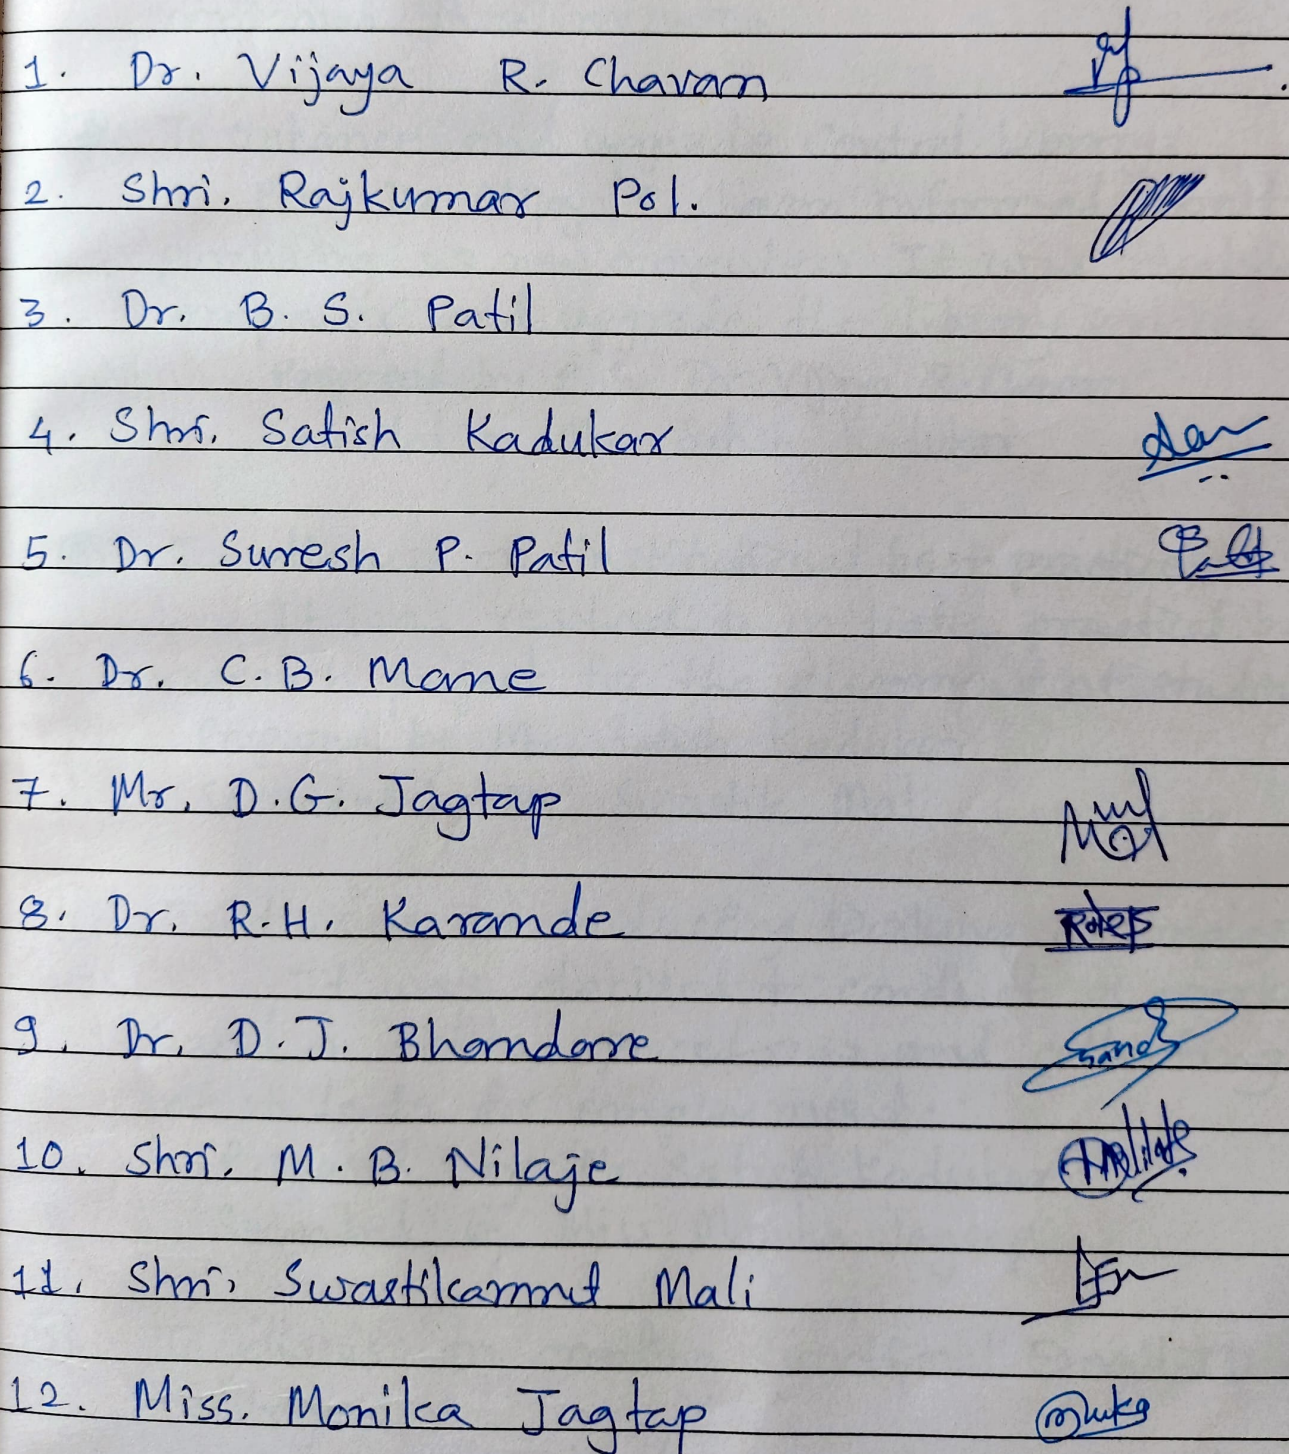 1. Dr. Vijaya R. Chavan
2. Shri. Rajkumar Pol.
3. Dr. B. S. Patil
4. Shri. Satish Kadukar
5. Dr. Suresh P. Patil
6. Dr. C. B. Mane
7. Mr. D. G. Jagtap
8. Dr. R. H. Karande
9. Dr. D. J. Bhandare
10. Shri. M. B. Nilaje
11. Shri. Mali
12. Miss. Monika Jagtap